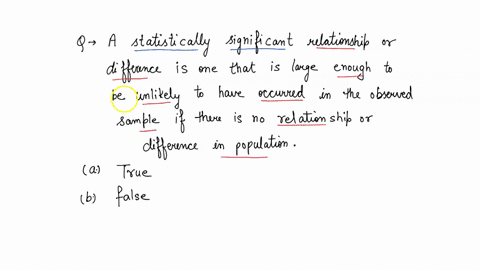 Q → A statistically significant relationship or
difference is one that is large enough to
be unlikely to have occurred in the observed
sample if there is no relationship or
difference in population.
(a) True
(b) false